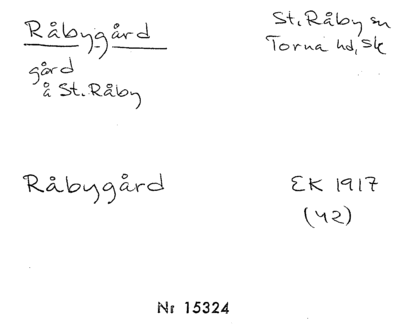 Råbygård
St. Råby sn
Torna hd, Sk
gård
å St. Råby
Råbygård
EK 1917
(42)
Nr 15324